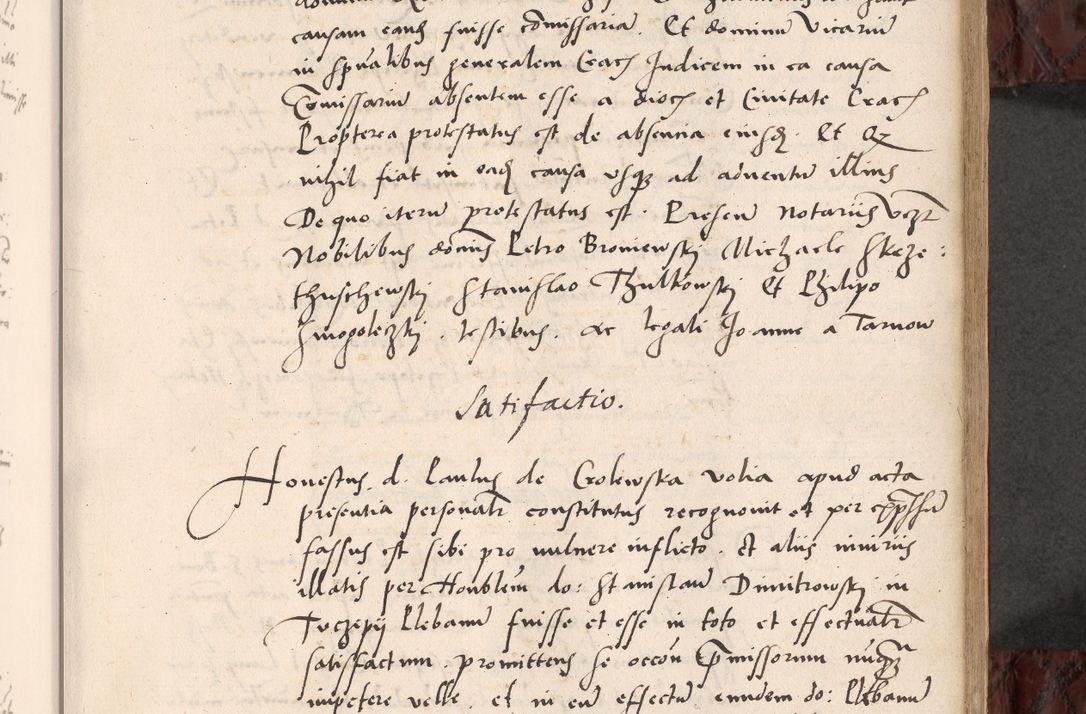 causam eand fuisse comissariū. Et dominū Vicariū
in spūalibus generalem Crac Judicem in ea causa
Comissariū absentem esse a dioc et Civitate Crac
Propterea protestatus est de absentia eiusd. Et q
nihil fiat in ead causa usq ad adventū illius
De quo iterū protestatus est. Presen notariis
Nobilibus domīs Petro Broniewskj Michaele Skrze:
thuschewskj Stanislao Thulkowskj Et Philipo
testibus. ac legali Joanne a Tarnow
Satifactio.
Honestus d. Paulus de Crolewska volia apud acta
presentia personalr constitutus recognovit et per
fassus est sibi pro vulnere inflicto. Et aliis iniuriis
illatis per Honblem do: Stanislaū Dimitrowskj in
Tuczepy Plebanū fuisse et esse in toto et effectualr
satisfactum. promittens se occon Premissorum nuq
impetere velle. et in eū effectū eundem do: Plebanū